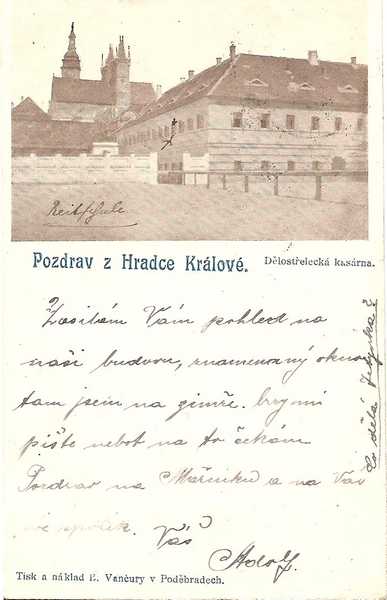 Reitschule
Pozdrav z Hradce Králové.
Dělostřelecká kasárna.
Zasílám Vám pohled na
naši budovu, znamenaný okno
tam jsem na cimře.
pište neboť na to čekám
Pozdrav na Mařenku a na Vás
Váš
Adolf.
Co dělá
Tisk a náklad E. Vančury v Poděbradech.